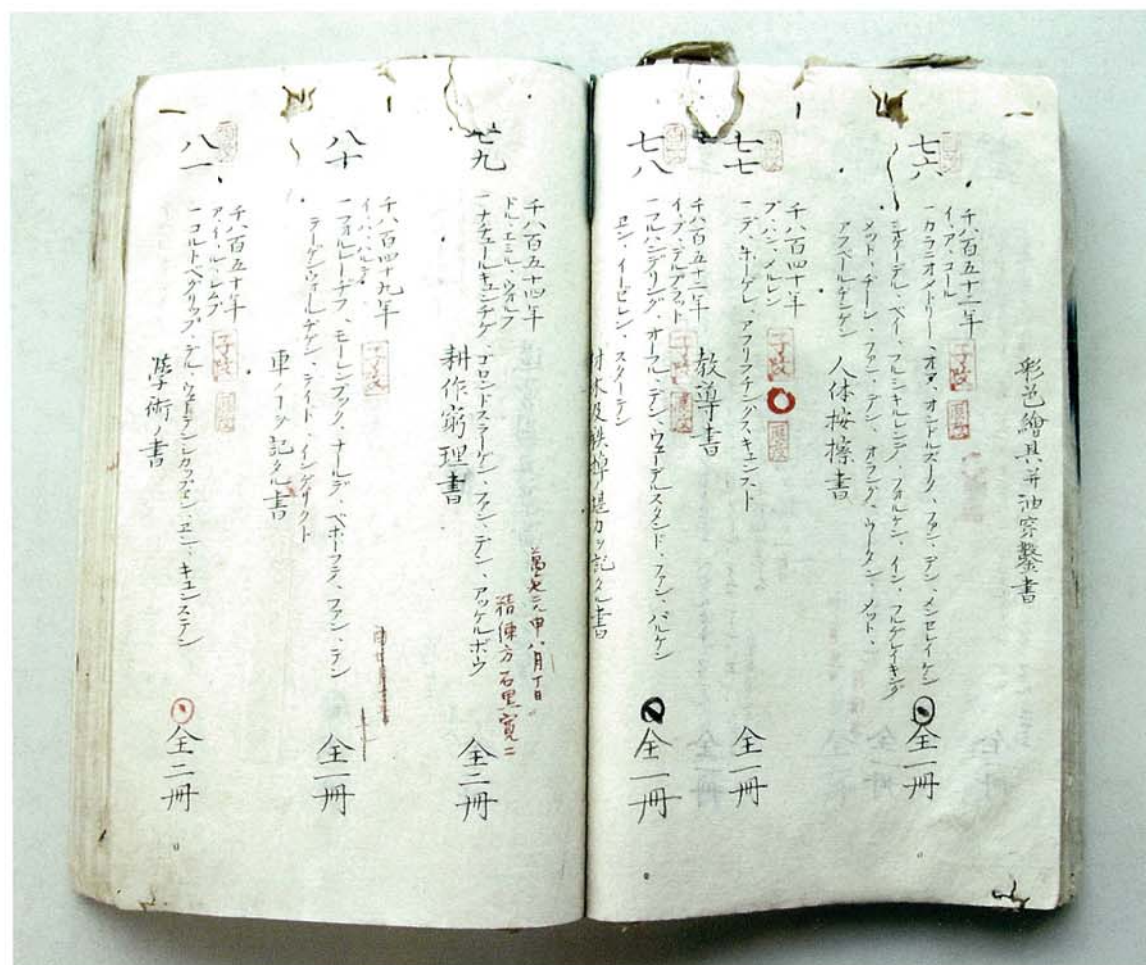 彩色繪具并油穿鑿書
七六
千八百五十三年
イ、ア、コール
一カラニオメドリー、オフ、オンドルズーク、ファン、デン、メンセレイケン
シケーデル、ベイ、フルシキルレンデ、フォルケン、イン、フルゲレイキング
メット、ヂーン、ファン、デン、オラング、ウータン、メット、
アフベールヂンゲン
人体按擦書
全一冊
七七
千八百四十年
ブ、ハン、メルレン
一デ、ホーゲレ、アフリフチングス、キュンスト
教導書
全一冊
七八
千八百五十二年
イ、ブ、デルプラット
一フルハンデリング、オーフル、デン、ウェーデルスタンド、ファン、バルケン
エン、イーゼレン、スターテン
材木及鉄棹堪力ヲ記タル書
全一冊
七九
千八百五十四年
ドル、エミル、ウオルフ
一ナチュールキュンヂゲ、ゴロンドスラーゲン、ファン、デン、アッケルボウ
耕作窮理書
全二冊
精煉方石黒寛二
八十
千八百四十九年
一フォルレーデフ、モーレンブック、ナールデ、ベホーフテ、ファン、デン
テーゲンウォールヂゲン、テイト、インゲリクト
車ノヿヲ記タル書
全一冊
八一
千八百五十年
一コルトベグリップ、デル、ウェトテンシカッペン、エン、キュンステン
學術ノ書
全二冊